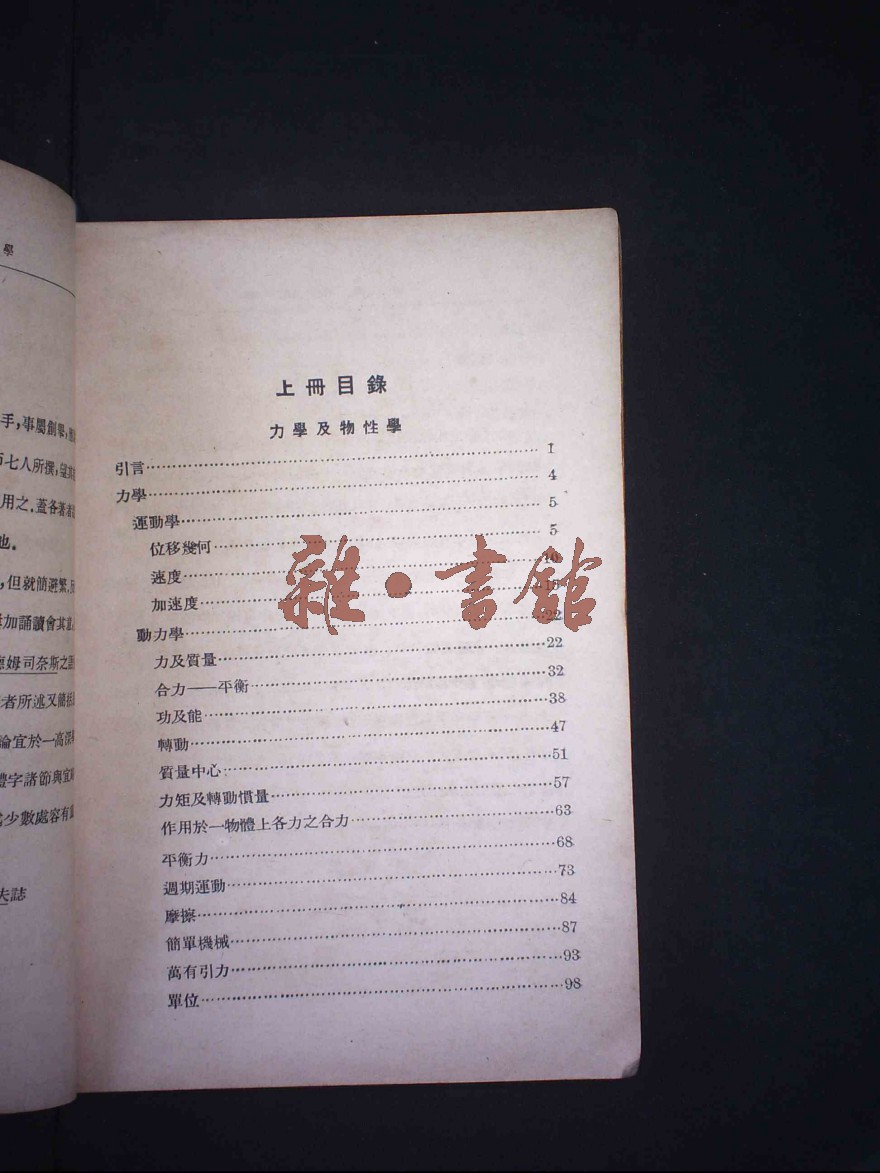 上冊目錄
力學及物性學
引言……1
力學……4
運動學……5
位移幾何……5
速度……10
加速度……15
動力學……22
力及質量……22
合力——平衡……32
功及能……38
轉動……47
質量中心……51
力矩及轉動慣量……57
作用於一物體上各力之合力……63
平衡力……68
週期運動……73
摩擦……84
簡單機械……87
萬有引力……93
單位……98
雜·書館
學
手,事屬創舉,
七人所撰,
用之.蓋各著
也.
,但就簡避繁,
加誦讀會其
姆司奈斯之
者所述又簡
論宜於一高深
體字諸節與宜
少數處容有
夫誌